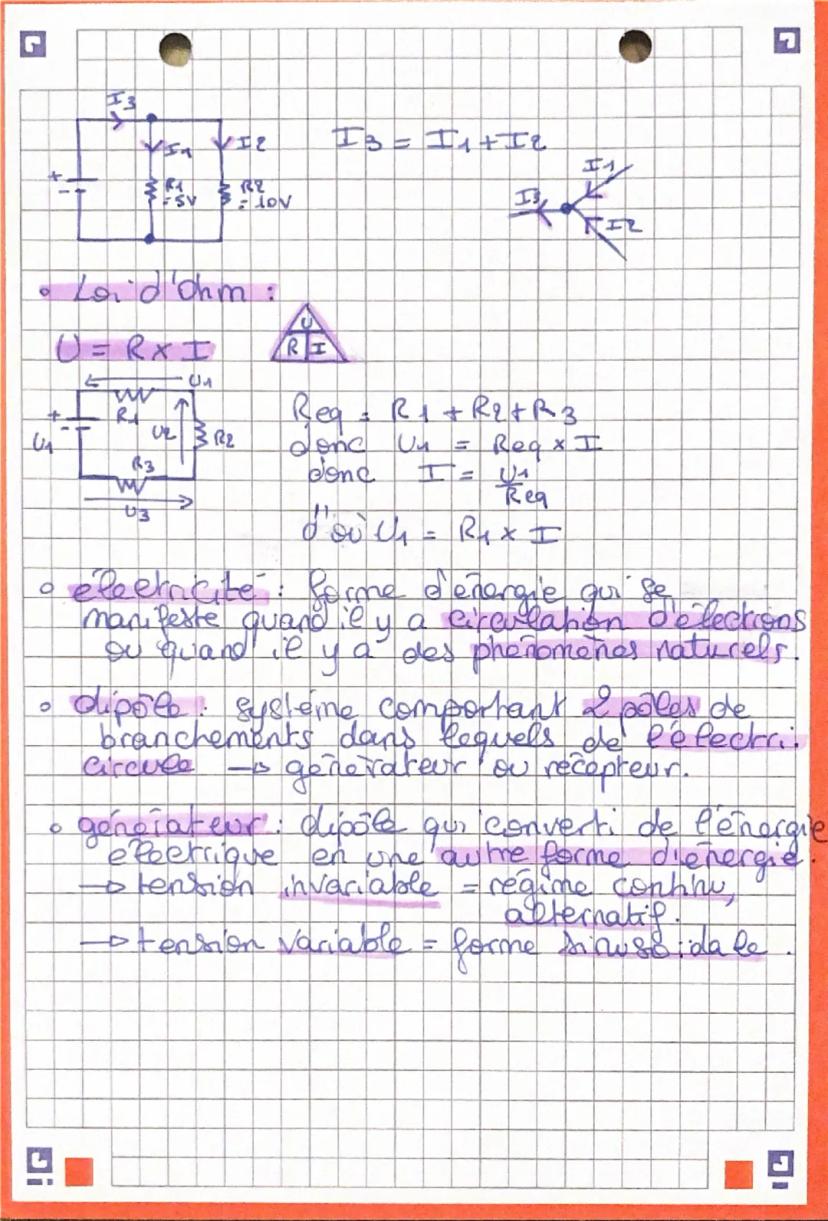 I3
I1
I2
I3 = I1 + I2
+
-
R1
= 5V
R2
= 10V
I1
I3
I2
• Loi d'Ohm :
U = R x I
U
R I
U1
+
-
U1
R1
U2
R2
R3
U3
Req = R1 + R2 + R3
donc U1 = Req x I
donc I = U1/Req
d'où U1 = R1 x I
• électricité : forme d'énergie qui se
manifeste quand il y a circulation d'élections
ou quand il y a des phénomènes naturels.
• dipôle : système comportant 2 pôles de
branchements dans lequels de l'électri.
circule → générateur ou récepteur.
• générateur : dipôle qui converti de l'énergie
électrique en une autre forme d'énergie.
→ tension invariable = régime continu,
alternatif.
→ tension variable = forme sinussoidale.